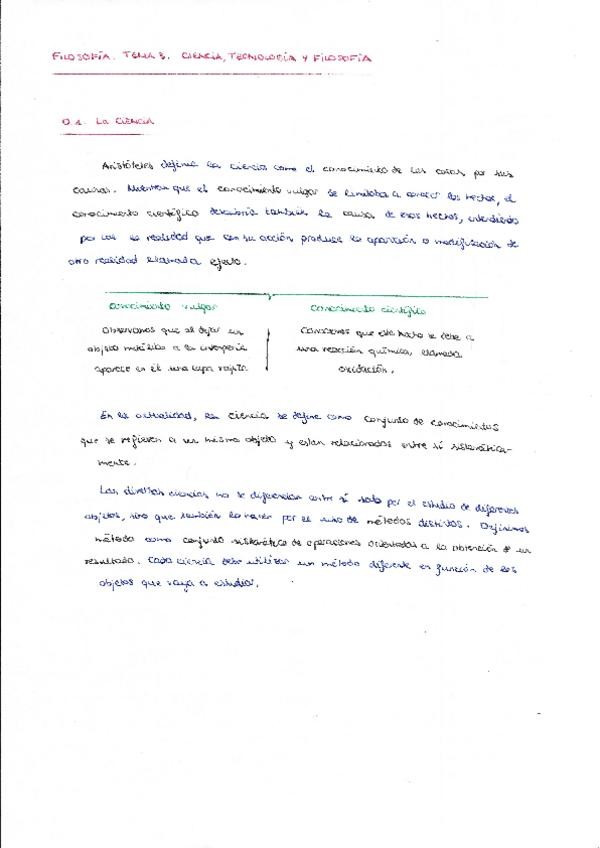 FILOSOFÍA. TEMA 3. CIENCIA, TECNOLOGÍA Y FILOSOFÍA
0.1. LA CIENCIA
Aristóteles define la ciencia como el conocimiento de las cosas por sus
causas. Mientras que el conocimiento vulgar se limitaba a conocer los hechos, el
conocimiento científico también la causa de esos hechos, entendiendo
por la realidad que con su acción produce la aparición o modificación de
otra realidad llamada efecto.
conocimiento vulgar
conocimiento científico
Observamos que al dejar un
objeto metálico a la intemperie
aparece en él una capa rojiza
Conocemos que este hecho se debe a
una reacción química, llamada
oxidación.
En la actualidad, la ciencia se define como conjunto de conocimientos
que se refieren a un mismo objeto y están relacionados entre sí sistemática-
mente.
Las distintas ciencias no se diferencian entre sí solo por el estudio de diferentes
objetos, sino que también lo hacen por el uso de métodos distintos. Definimos
método como conjunto sistemático de operaciones orientadas a la obtención de un
resultado. Cada ciencia debe utilizar un método diferente en función de los
objetos que vaya a estudiar.